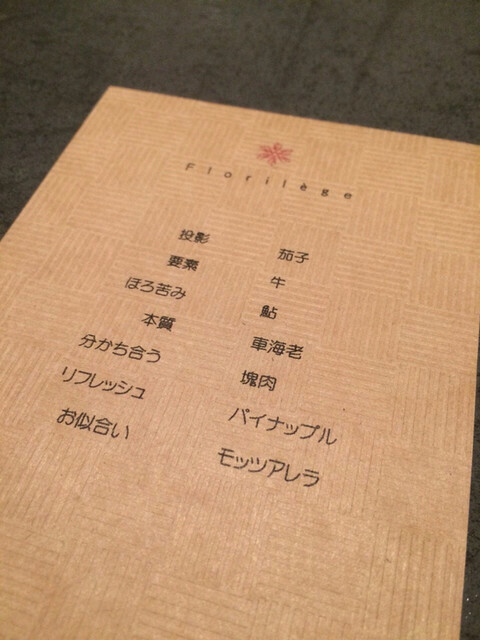 Florilège
投影 茄子
要素 牛
ほろ苦み 鮎
本質 車海老
分かち合う 塊肉
リフレッシュ パイナップル
お似合い モッツアレラ